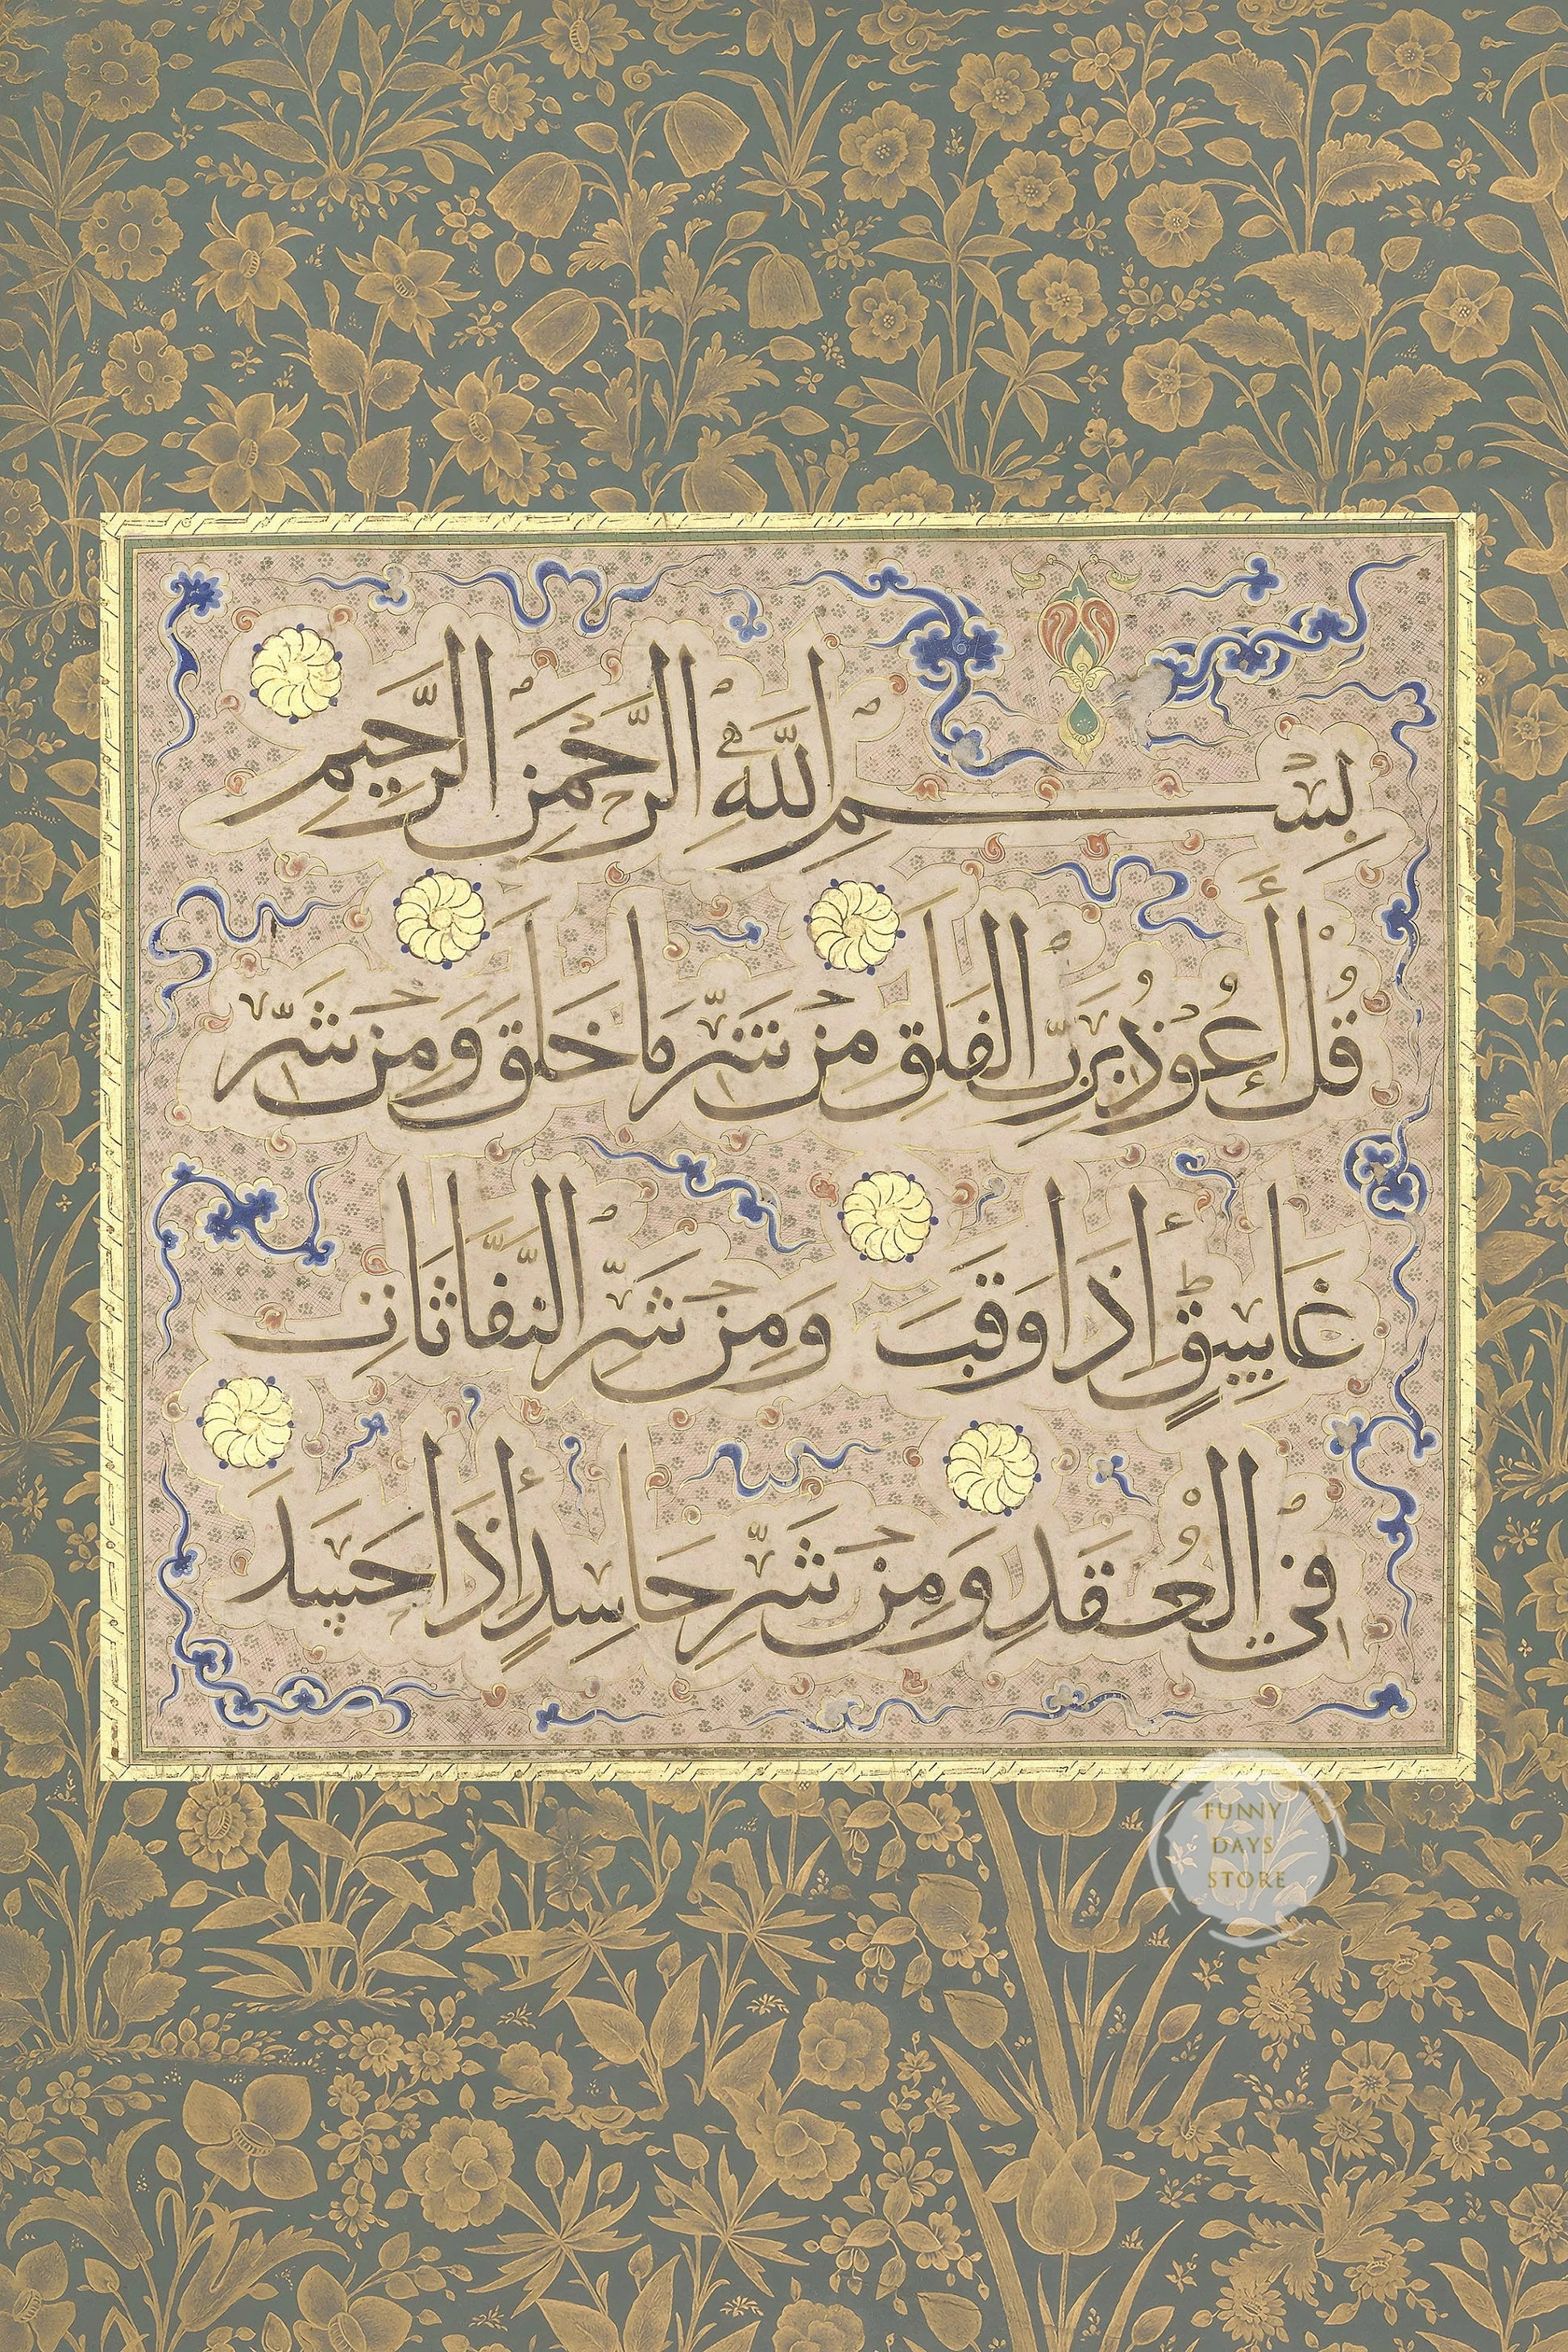 بِسْمِ اللَّهِ الرَّحْمَٰنِ الرَّحِيمِ
قُلْ أَعُوذُ بِرَبِّ الْفَلَقِ مِنْ شَرِّ مَا خَلَقَ وَمِنْ شَرِّ
غَاسِقٍ إِذَا وَقَبَ وَمِنْ شَرِّ النَّفَّاثَاتِ
فِي الْعُقَدِ وَمِنْ شَرِّ حَاسِدٍ إِذَا حَسَدَ
FUNNY
DAYS
STORE